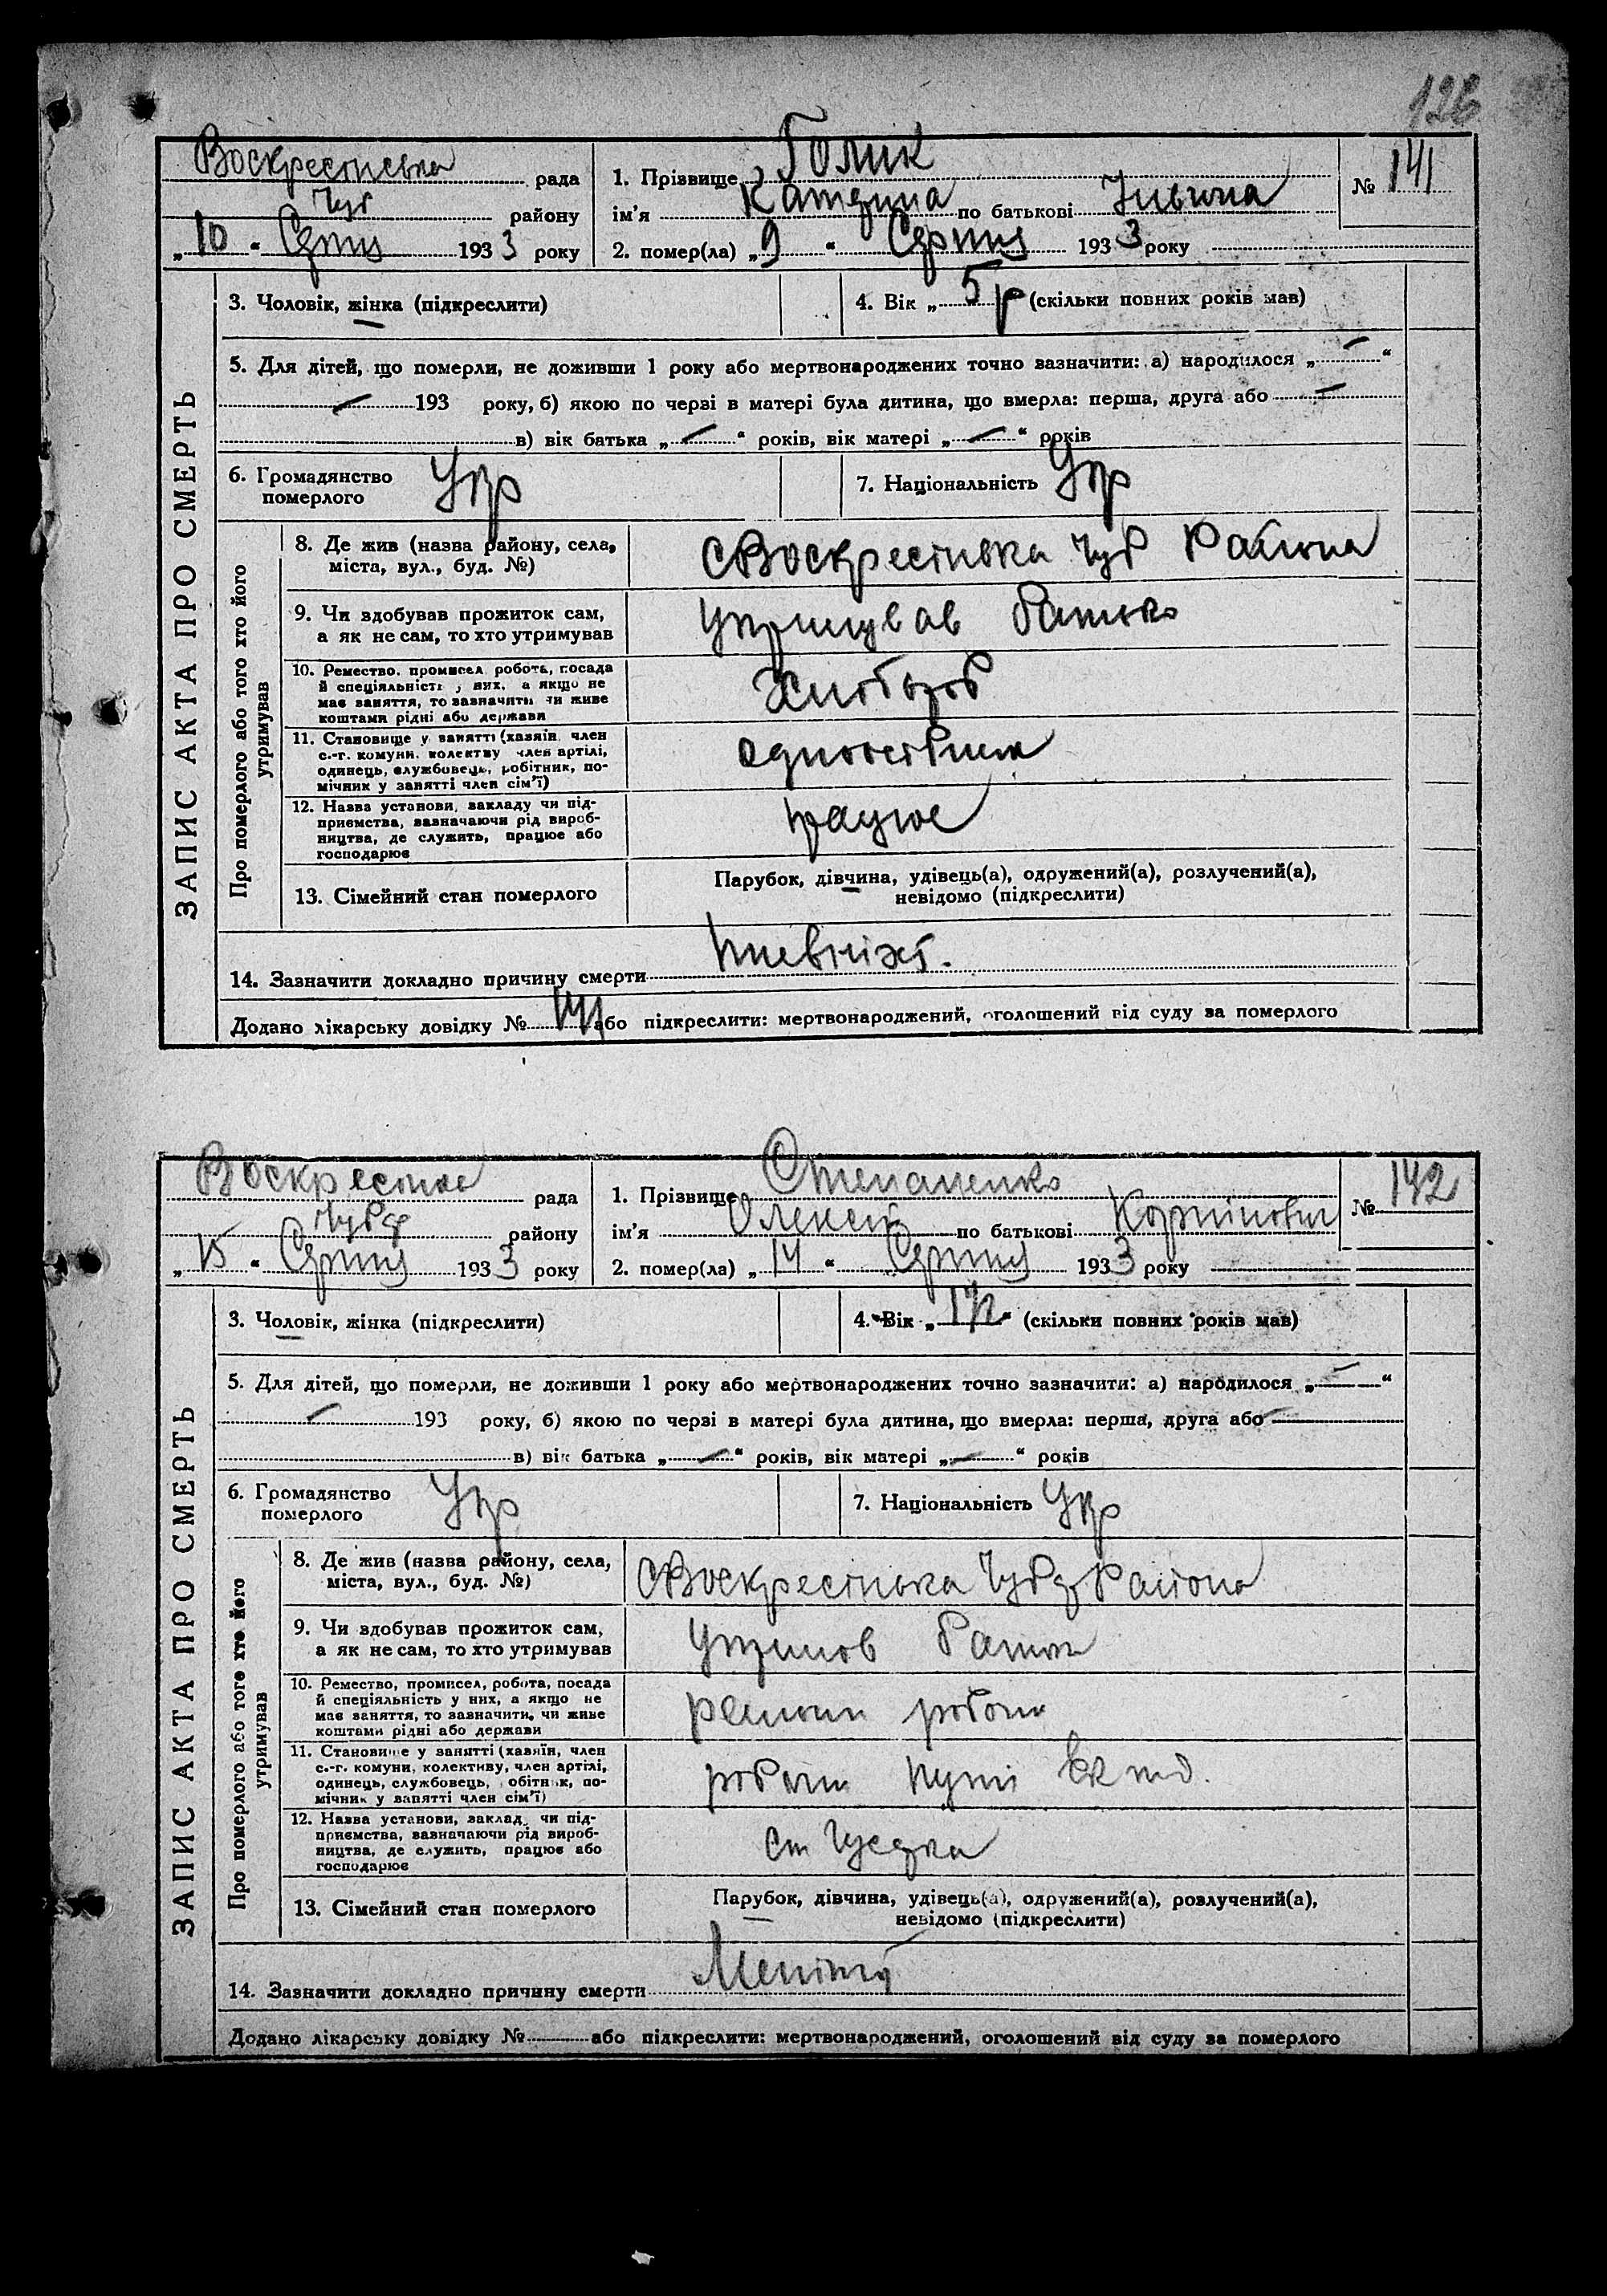 126
Воскресінська рада
Чуб району
„10“ Серпня 1933 року
1. Прізвище Голик
ім'я Катерина по батькові
2. помер(ла) „9“ Серпня 1933 року
№ 141
ЗАПИС АКТА ПРО СМЕРТЬ
3. Чоловік, жінка (підкреслити)
4. Вік „5р (скільки повних років мав)
5. Для дітей, що померли, не доживши 1 року або мертвонароджених точно зазначити: а) народилося „—“
— 193 року, б) якою по черзі в матері була дитина, що вмерла: перша, друга або —
в) вік батька „—“ років, вік матері „—“ років
6. Громадянство
померлого Укр
7. Національність Укр
Про померлого або того хто його
утримував
8. Де жив (назва району, села,
міста, вул., буд. №)
с Воскресінська Чуб Района
9. Чи здобував прожиток сам,
а як не сам, то хто утримував
утримував батько
10. Ремество, промисел робота, посада
й спеціяльність у них, а якщо не
має заняття, то зазначити чи живе
коштами рідні або держави
Хлібороб
11. Становище у занятті (хазяїн, член
с.-г. комуни, колективу член артілі,
одинець, службовець, робітник, по-
мічник у занятті член сім'ї)
12. Назва установи, закладу чи під-
приємства, зазначаючи рід вироб-
ництва, де служить, працює або
господарює
працює
13. Сімейний стан померлого
Парубок, дівчина, удівець(а), одружений(а), розлучений(а),
невідомо (підкреслити)
14. Зазначити докладно причину смерти
Додано лікарську довідку № 141 або підкреслити: мертвонароджений, оголошений від суду за померлого
Воскресінка рада
району
„15“ Серпня 1933 року
1. Прізвище Степаненко
ім'я Олексій по батькові
2. помер(ла) „14“ Серпня 1933 року
№ 142
ЗАПИС АКТА ПРО СМЕРТЬ
3. Чоловік, жінка (підкреслити)
4. Вік „ “ (скільки повних років мав)
5. Для дітей, що померли, не доживши 1 року або мертвонароджених точно зазначити: а) народилося „—“
— 193 року, б) якою по черзі в матері була дитина, що вмерла: перша, друга або —
в) вік батька „—“ років, вік матері „—“ років
6. Громадянство
померлого Укр
7. Національність Укр
Про померлого або того хто його
утримував
8. Де жив (назва району, села,
міста, вул., буд. №)
с Воскресінська Района
9. Чи здобував прожиток сам,
а як не сам, то хто утримував
10. Ремество, промисел, робота, посада
й спеціяльність у них, а якщо не
має заняття, то зазначити, чи живе
коштами рідні або держави
11. Становище у занятті (хазяїн, член
с.-г. комуни, колективу, член артілі,
одинець, службовець, робітник, по-
мічник у занятті член сім'ї)
12. Назва установи, заклад, чи під-
приємства, зазначаючи рід вироб-
ництва, де служить, працює або
господарює
ст
13. Сімейний стан померлого
Парубок, дівчина, удівець(а), одружений(а), розлучений(а),
невідомо (підкреслити)
14. Зазначити докладно причину смерти
Додано лікарську довідку № або підкреслити: мертвонароджений, оголошений від суду за померлого